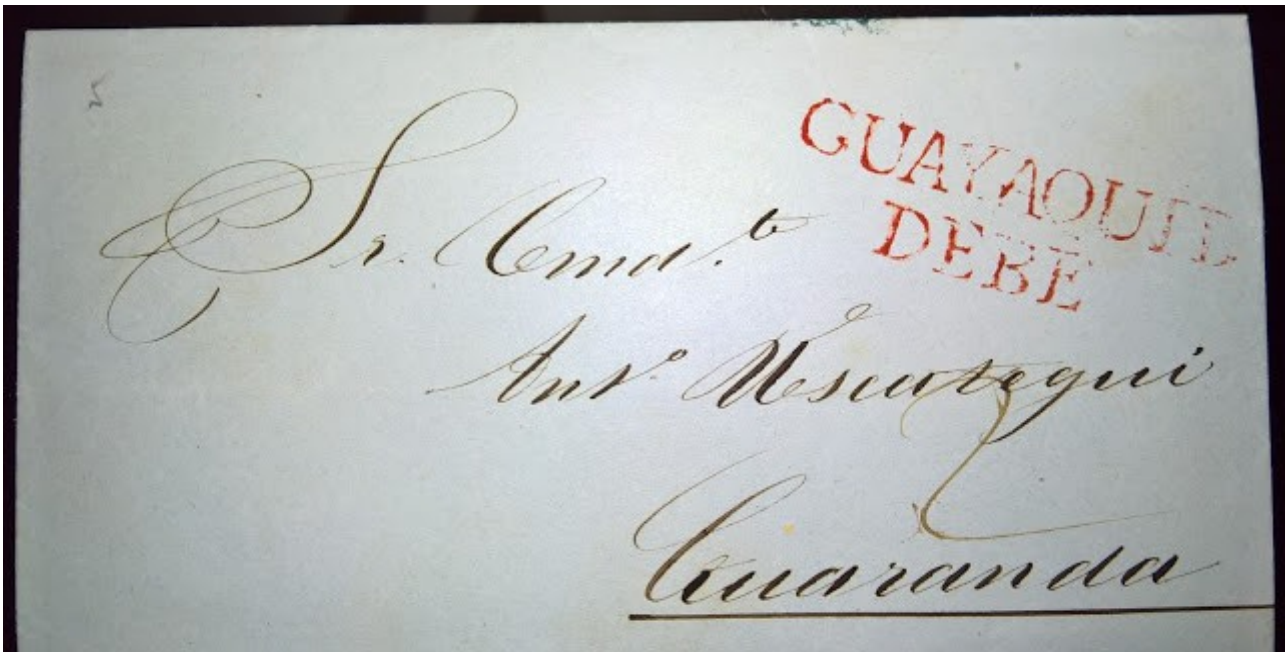 GUAYAQUIL
DEBE
Sr. Cmd.te
Ant.o Uscategui
2
Guaranda